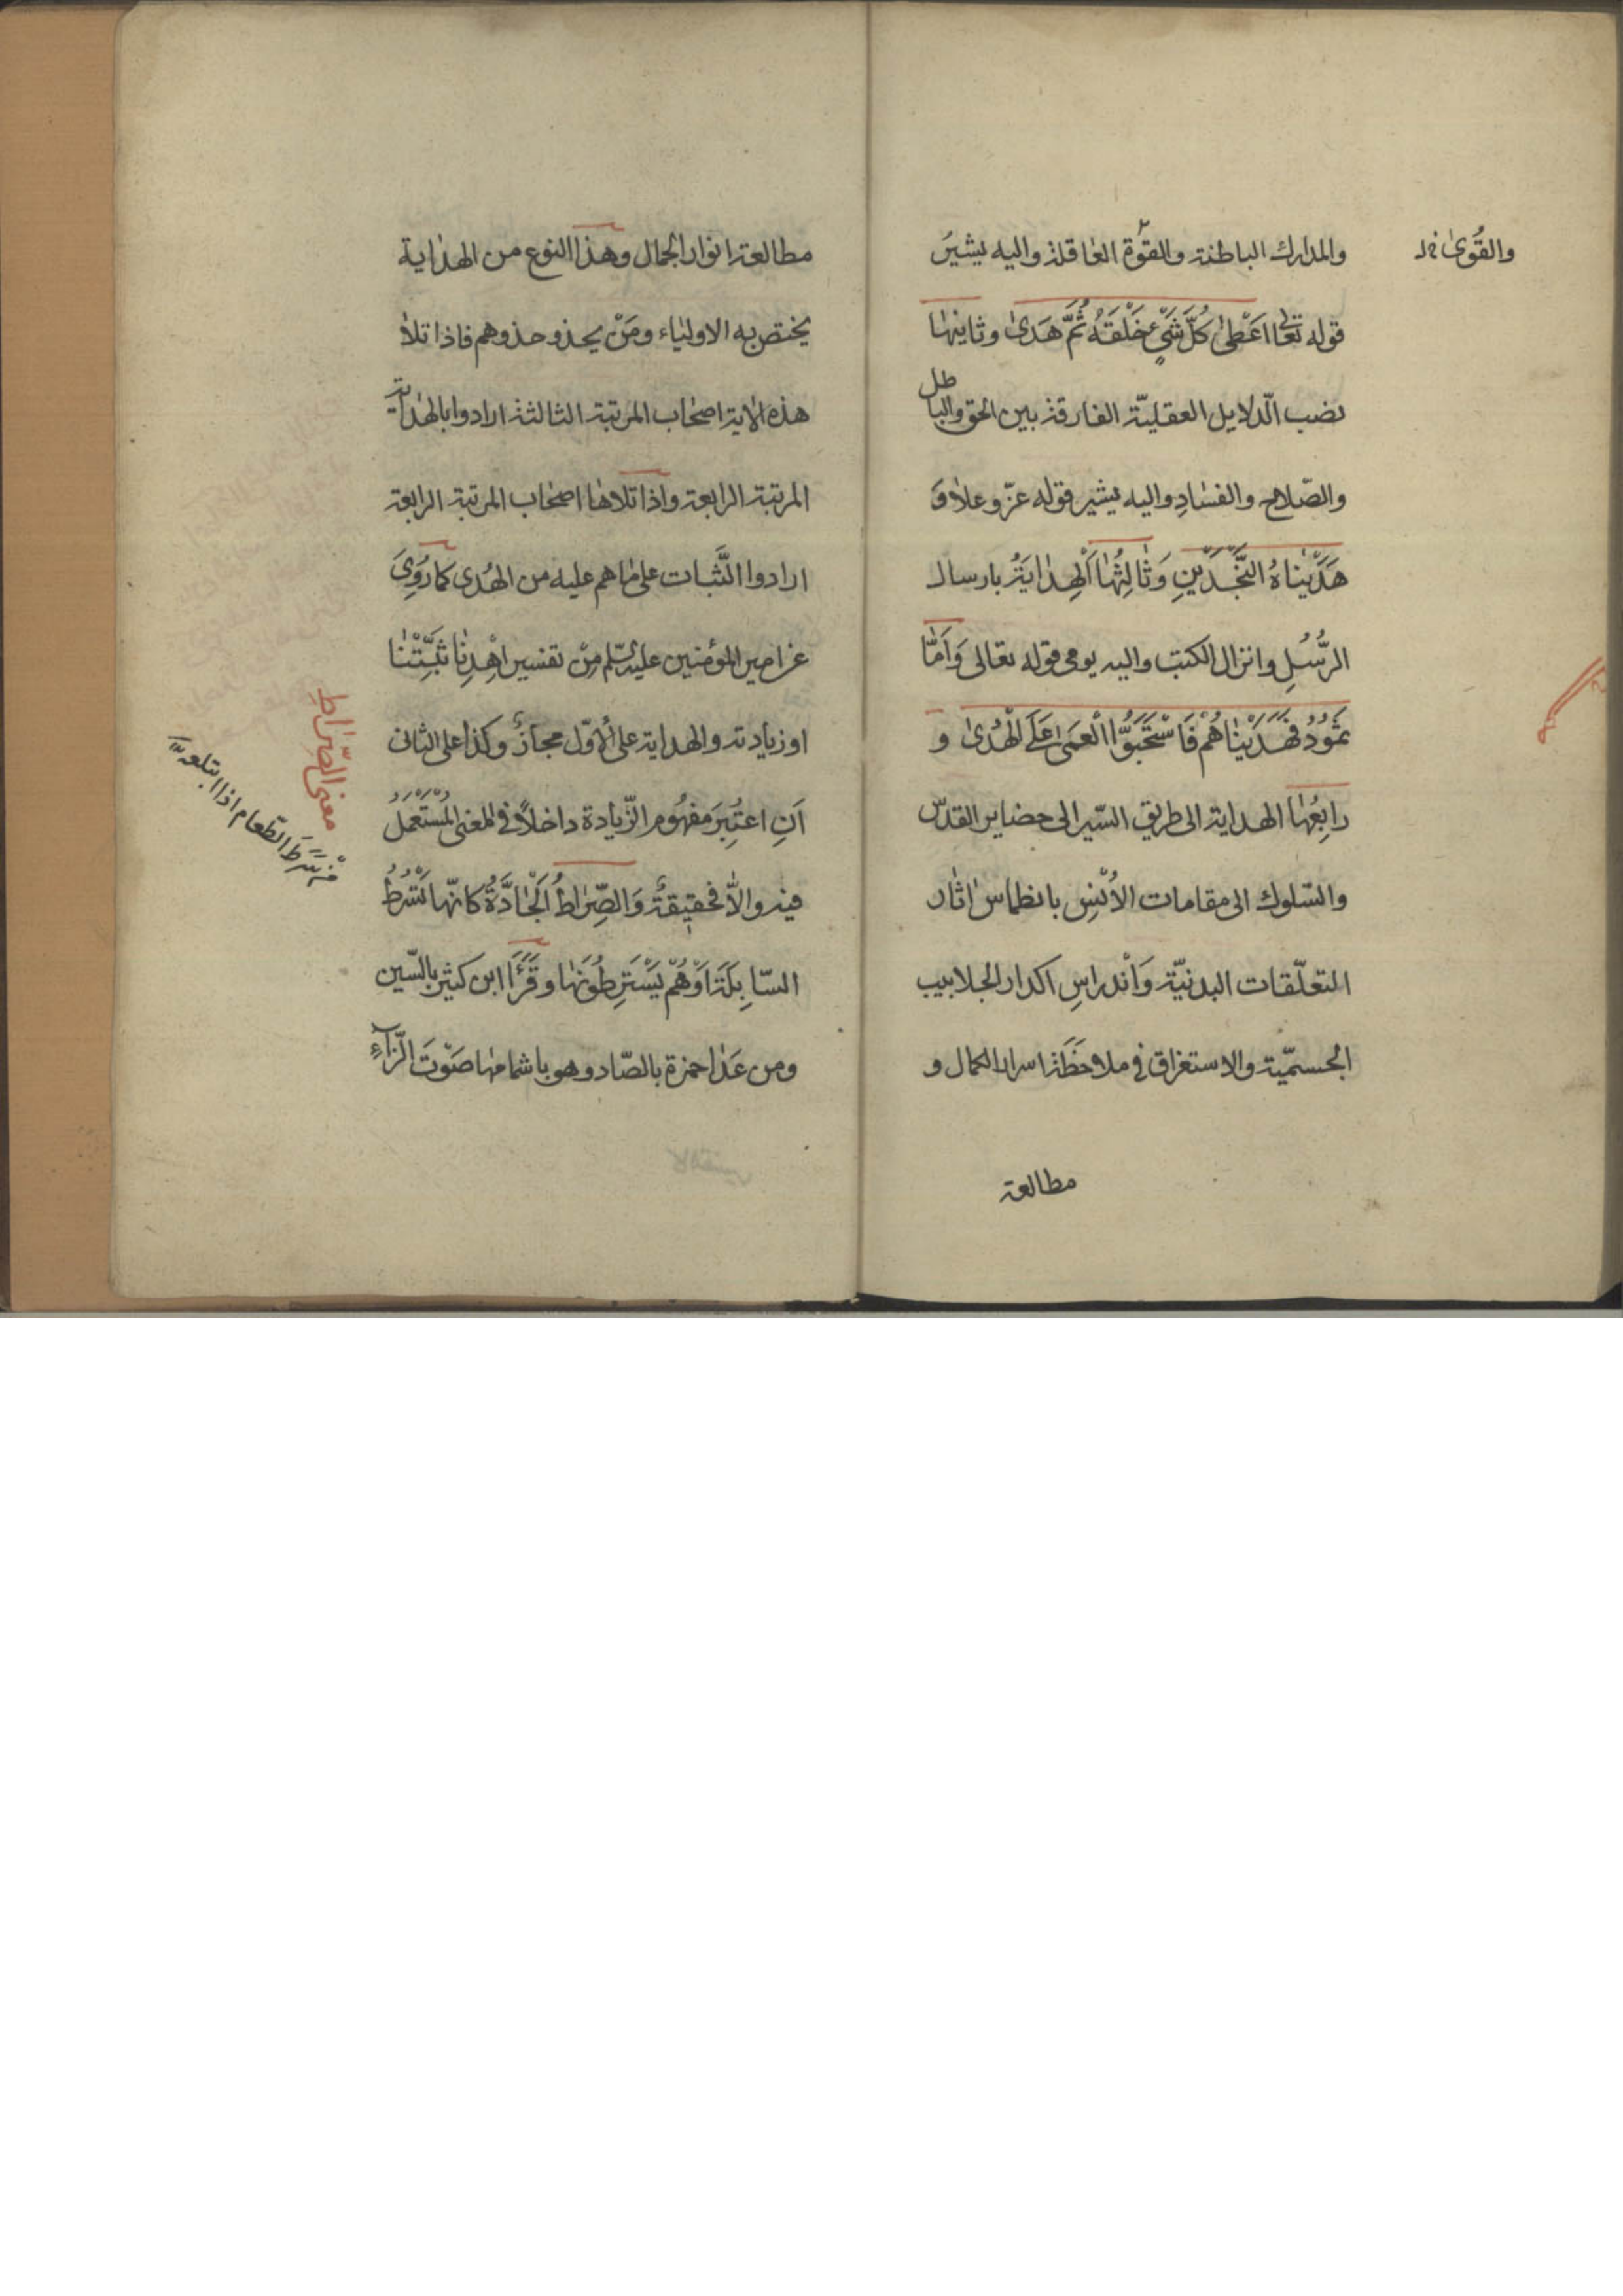 والمدارك الباطنة والقوّة العاقلة واليه يشير
والقُوىٰ
قوله تعالى اَعْطىٰ كُلَّ شَيْءٍ خَلْقَهُ ثُمَّ هَدىٰ وثانيها
نصب الدّلايل العقليّة الفارقة بين الحق والباطل
والصّلاح والفسادِ واليه يشير قوله عزّ وعلا وَ
هَدَيْناهُ النَّجْدَيْنِ وَثالِثُها اَلْهِدايَةُ بارسال
الرُّسُلِ وانزال الكتب واليه يومى قوله تعالى وَاَمّا
ثَمُودُ فَهَدَيْناهُمْ فَاسْتَحَبُّوا الْعَمىٰ عَلَى الْهُدىٰ و
رابِعُها الهداية الى طريق السّير الى حضاير القدس
والسّلوك الى مقامات الاُنْسِ بانطماس اثار
التعلّقات البدنيّة وَاْندراسِ اكدار الجلابيب
الجسميّة والاستغراق فى ملاحظَة اسرار الكمال و
مطالعة
مطالعة انوار الجمال وهذا النوع من الهداية
يختص به الاولياء ومَنْ يحذو حذوهم فاذا تلا
هذه الاية اصحاب المرتبة الثالثة ارادوا بالهداية
المرتبة الرابعة واذا تلاها اصحاب المرتبة الرابعة
ارادوا الثَّبات على ما هم عليه من الهُدى كما رُوِىَ
عن امير المؤمنين عليه السّلم مِنْ تفسير اِهْدِنا ثَبِّتْنا
او زيادته والهداية على الاوّل مجازٌ وكذا على الثانى
اَنِ اعتُبِرَ مفهُوم الزّيادة داخلاً فى المعنى المُسْتَعْمَلُ
فيه والاّ فحقيقةٌ وَالصِّراطُ اَلْجادَّةُ كانّها تَسْرُطُ
السّابِلَةَ اَوْهُمْ يَسْتَرِطُونَها وقَرَأَ ابن كثير بالسّين
ومن عَدا حمزة بالصّاد وهو باشمامها صَوْتَ الزّآءِ
معنى الصّراطِ
سَرَطَ الطّعام اذا ابتلعه